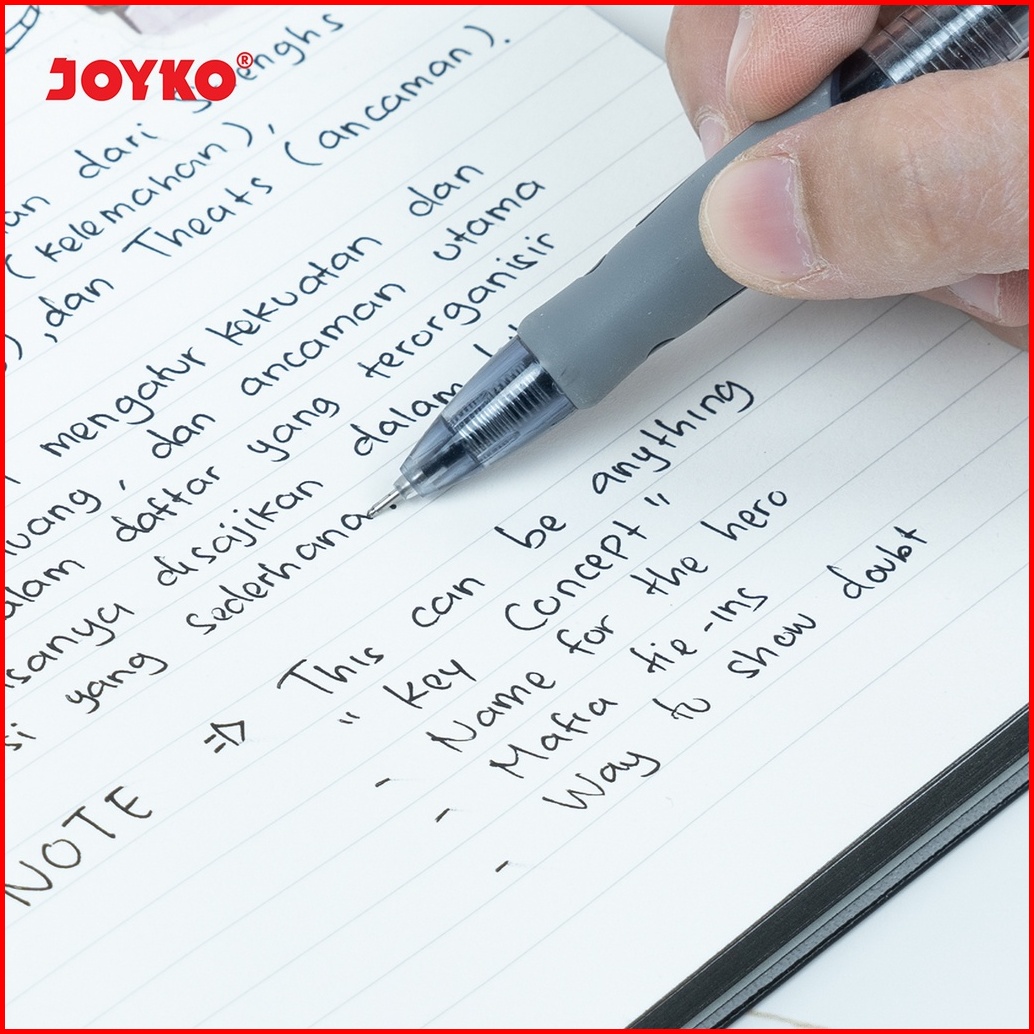 JOYKO®
dari
(kelemahan),
,dan Theats (ancaman).
mengatur kekuatan dan
, dan ancaman utama
daftar yang terorganisir
disajikan dalam
yang sederhana.
NOTE => This can be anything
" Key Concept "
- Name for the hero
- Mafia tie-ins
- Way to show doubt